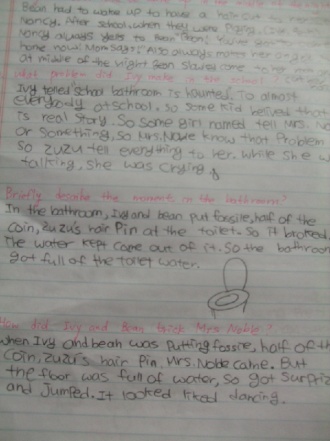 Bean had to wake up to have a hair cut
Nancy. After school, when they were
Nancy always yells to Bean "Bean! You've got
home now! Mom says!" Also always makes her angry.
at middle of the night Bean
what problem did Ivy make in the school
Ivy telled school bathroom is haunted. To almost
everybody at school. So some kid belived that
is real story. So some girl named tell Mrs. No
or something, so Mrs. Noble know that problem
so zuzu tell everything to her. While she w
tallking, she was crying.
Briefly describe the moments in the bathroom?
In the bathroom, Ivy and bean put fossile, half of the
coin, zuzu's hair Pin at the toilet. So it broked.
The water kept came out of it. So the bathroom
got full of the toilet water.
How did Ivy and Bean trick Mrs. Noble?
when Ivy and bean was putting fossire, half of th
coin, zuzu's hair pin. Mrs. Noble came. But
the floor was full of water, so got surpriz
and Jumped. It looked liked dancing.